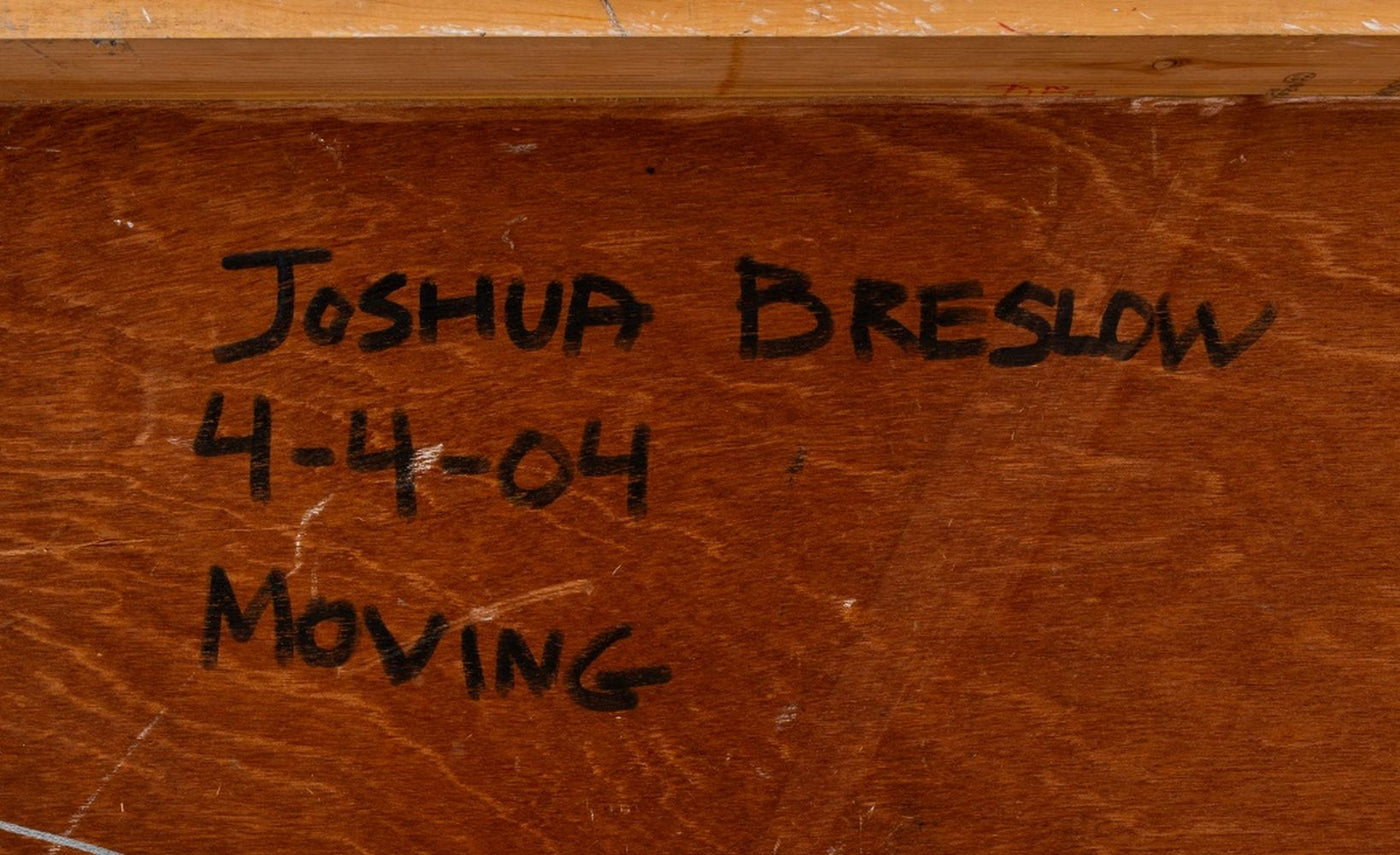 JOSHUA BRESLOW
4-4-04
MOVING